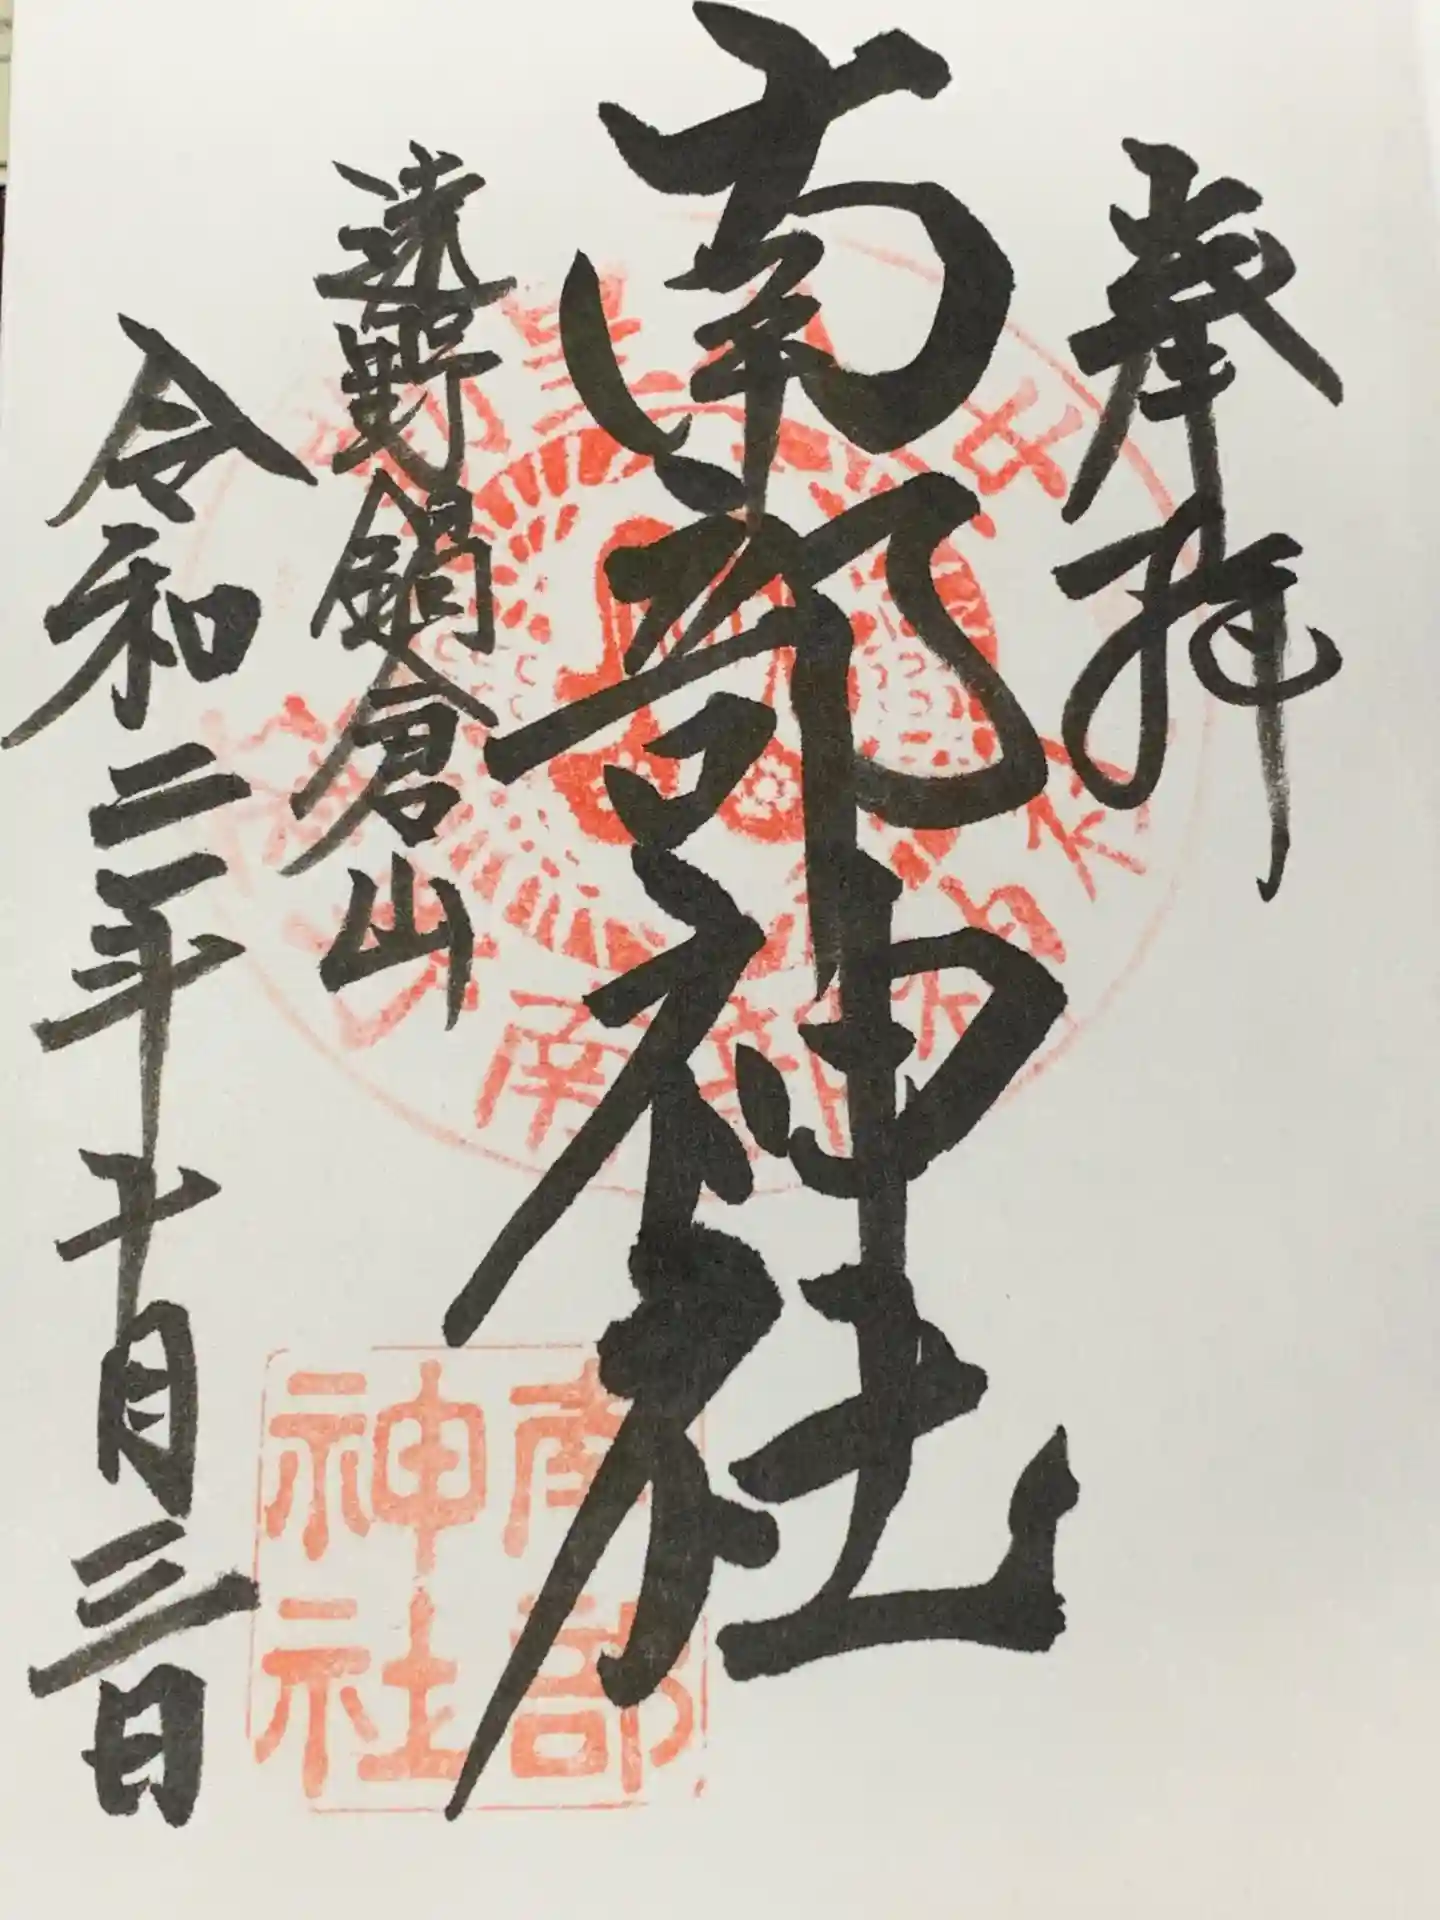 奉拝
南部神社
遠野鍋倉山
令和二年十月三日
南部
神社